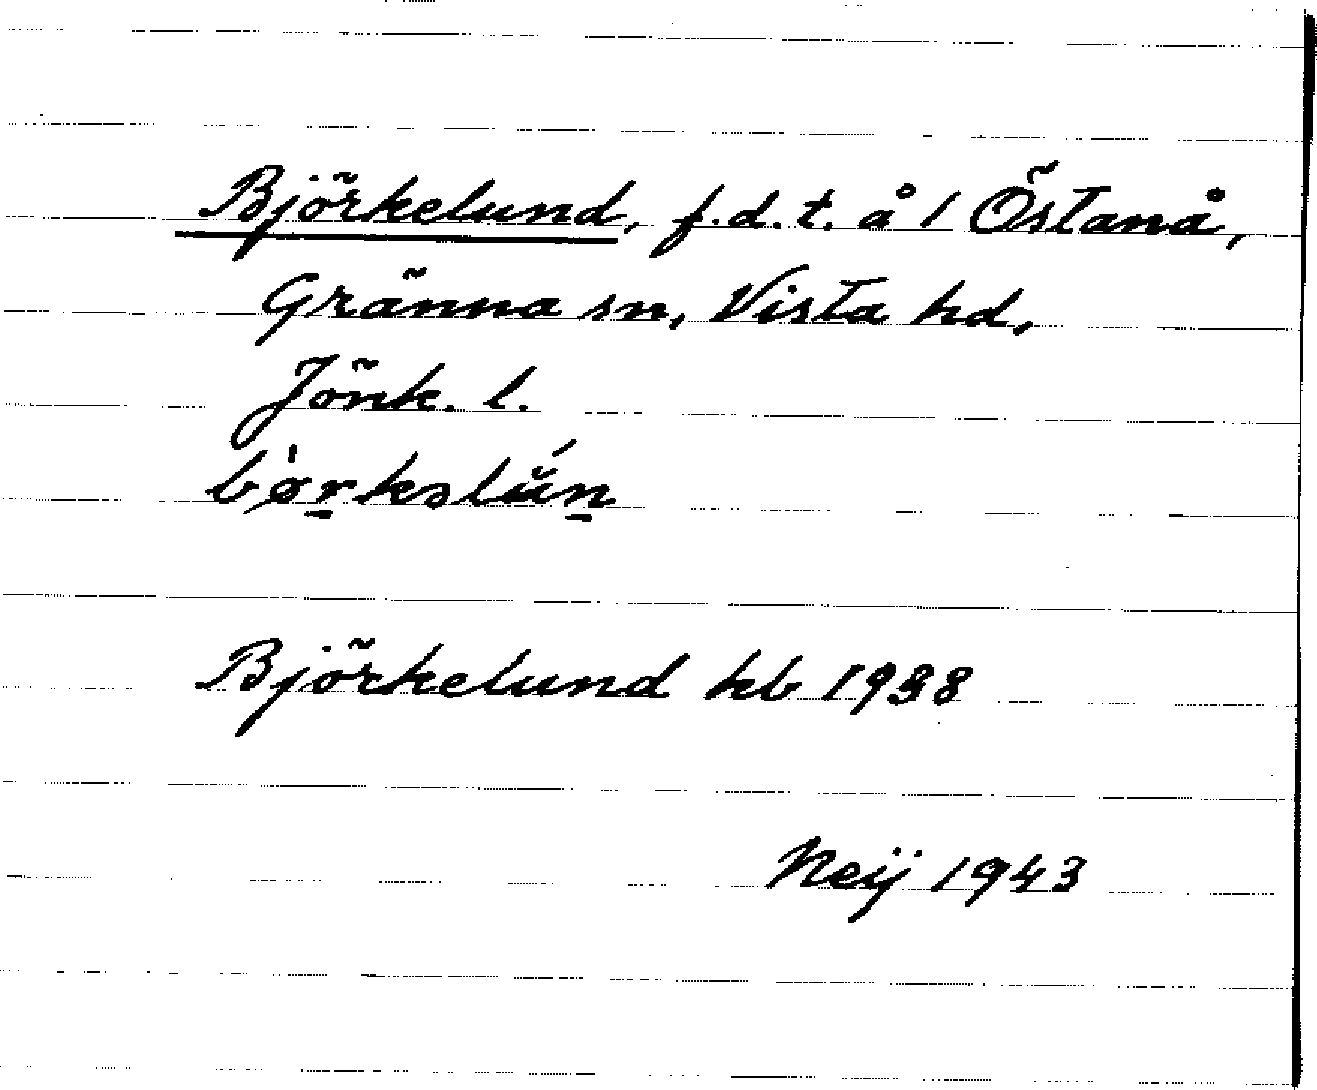 Björkelund, f.d.t. å 1 Östanå,
Gränna sn, Vista hd,
Jönk. l.
Björkelund kb 1938
Neij 1943